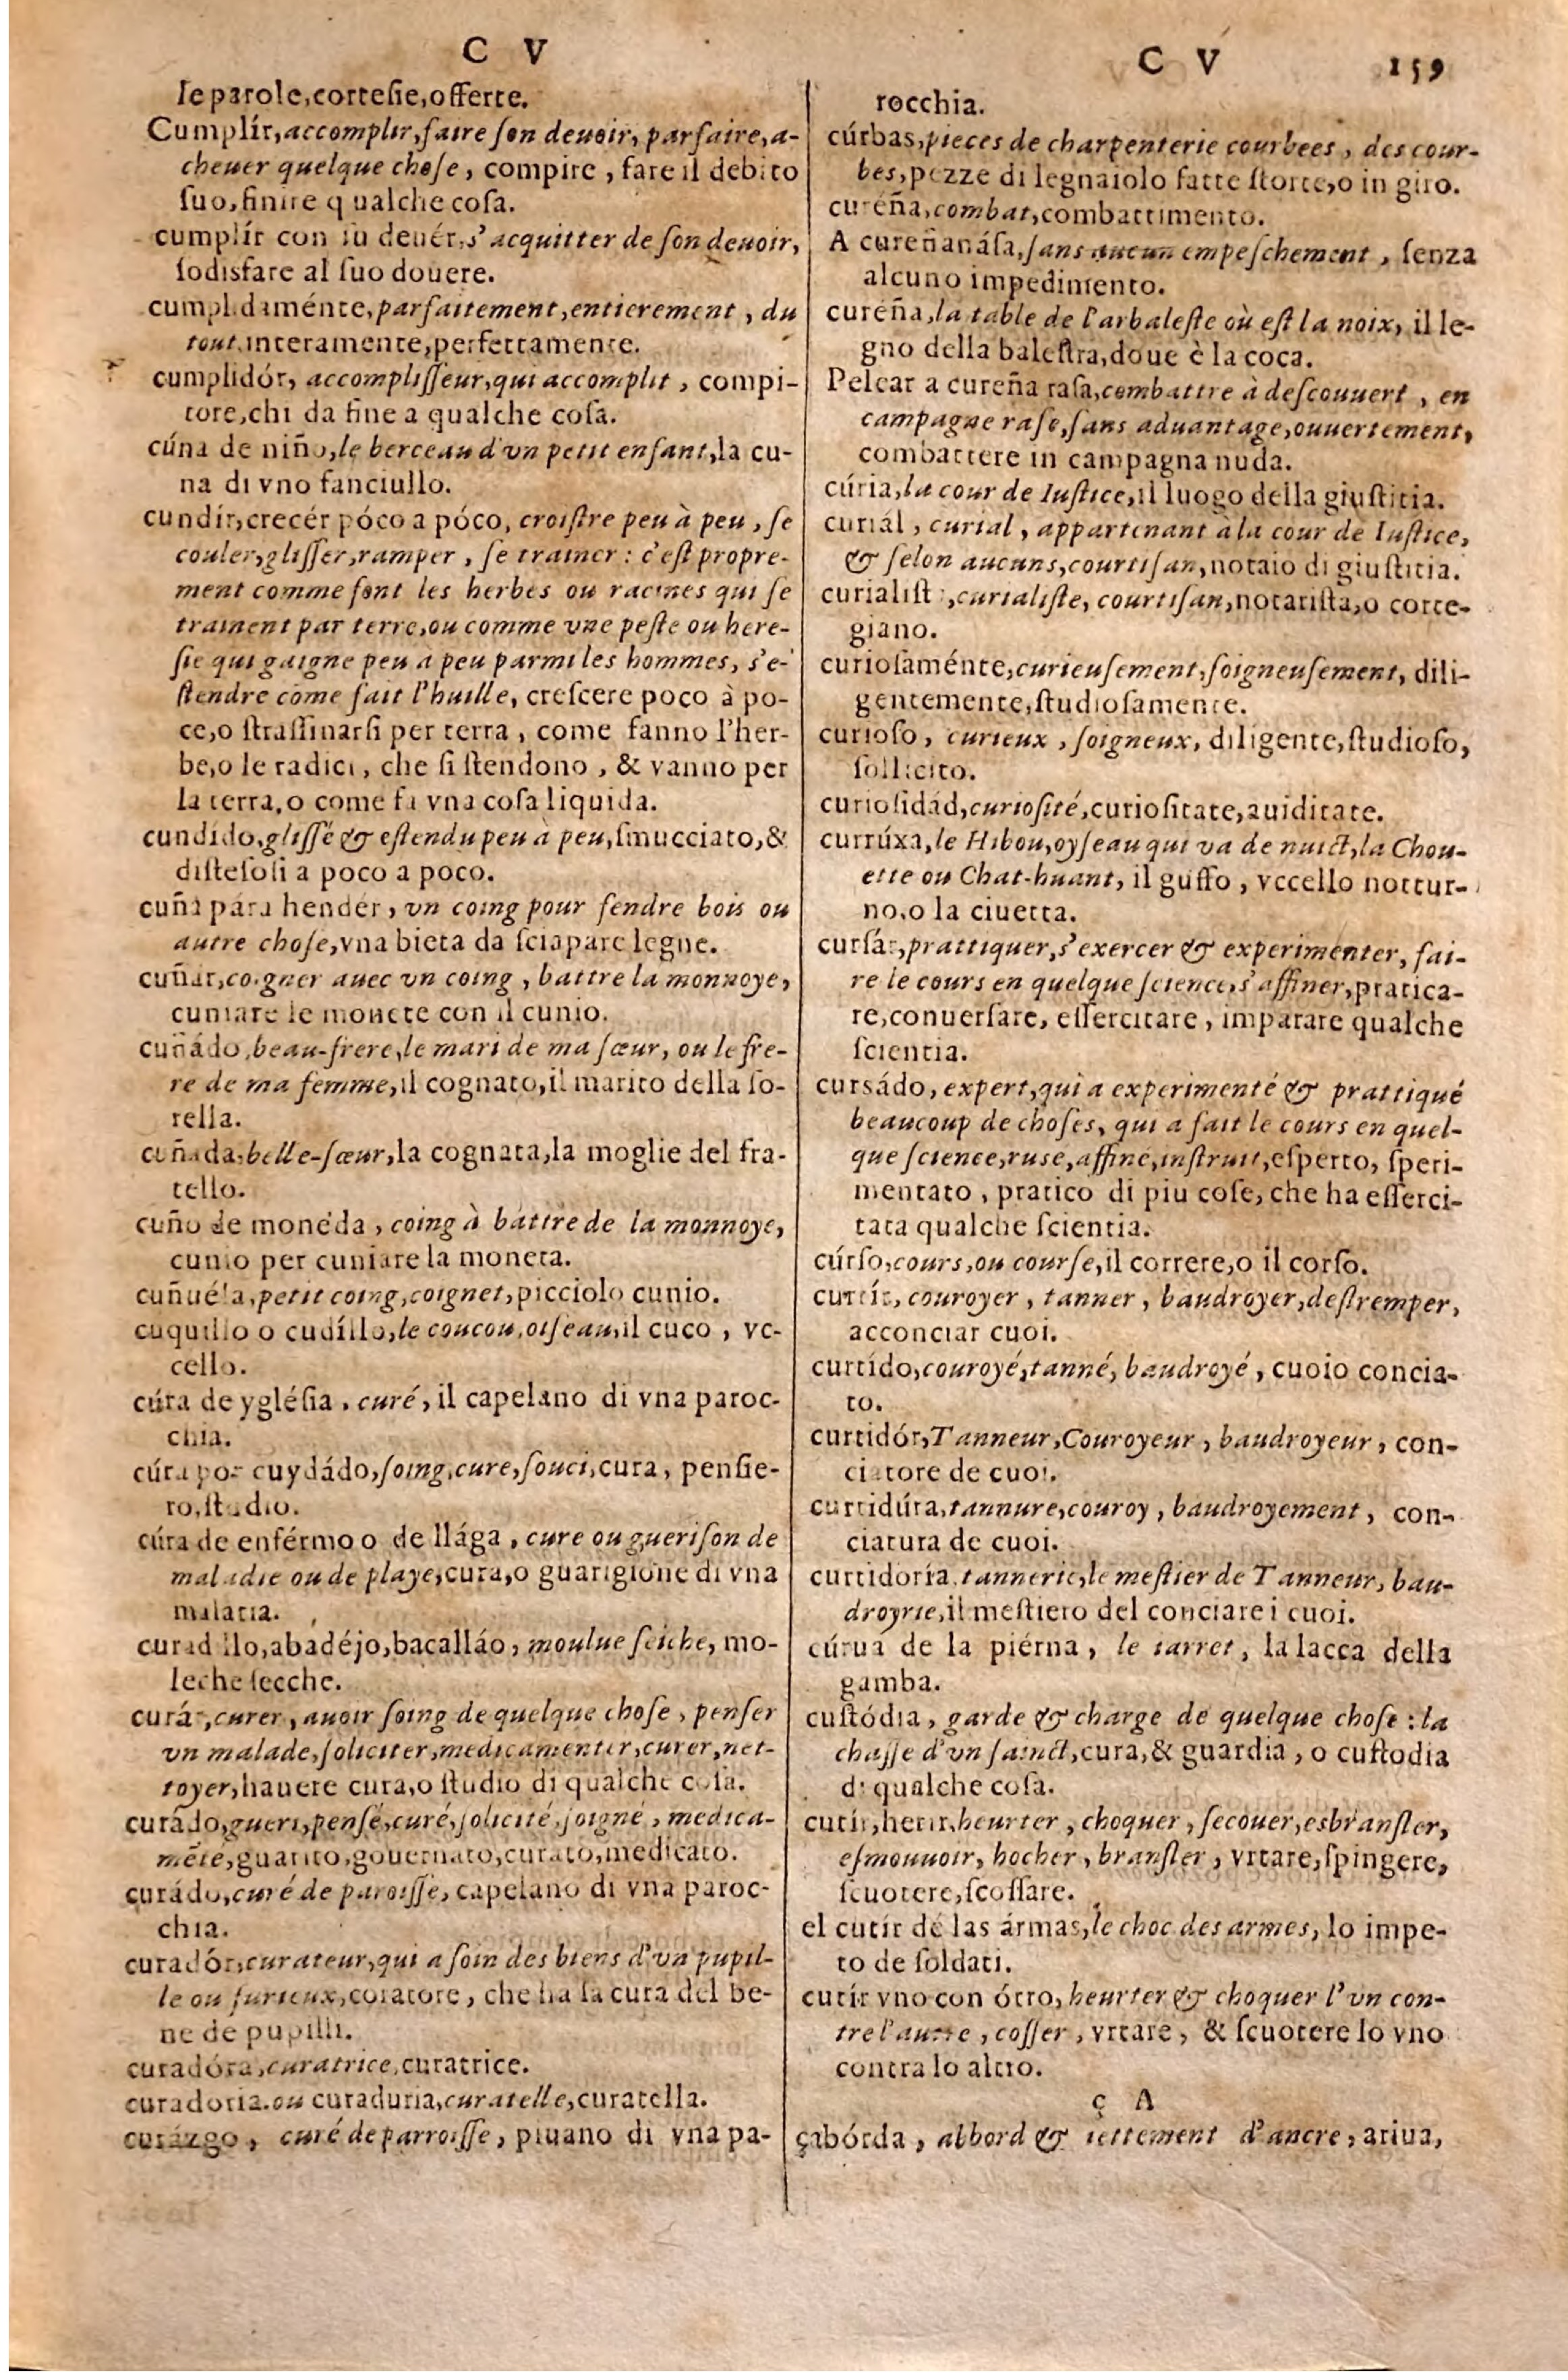 C V
ſe parole, corteſie, offerte.
Cumplír, accomplir, faire ſon deuoir, parfaire, a-
cheuer quelque choſe, compire, fare il debito
ſuo, finire qualche coſa.
cumplír con ſu deuér, s'acquitter de ſon deuoir,
ſodisfare al ſuo douere.
cumplidaménte, parfaitement, entierement, du
tout, interamente, perfettamente.
cumplidór, accompliſſeur, qui accomplit, compi-
tore, chi da fine a qualche coſa.
cúna de niño, le berceau d'vn petit enfant, la cu-
na di vno fanciullo.
cundír, crecér póco a póco, croiſtre peu à peu, ſe
couler, gliſſer, ramper, ſe trainer: c'eſt propre-
ment comme font les herbes ou racines qui ſe
trainent par terre, ou comme vne peſte ou here-
ſie qui gaigne peu a peu parmi les hommes, s'e-
ſtendre cōme fait l'huille, creſcere poco à po-
ce, o ſtraſſinarſi per terra, come fanno l'her-
be, o le radici, che ſi ſtendono, & vanno per
la terra, o come fa vna coſa liquida.
cundído, gliſſé & eſtendu peu à peu, ſmucciato, &
diſteſoſi a poco a poco.
cuña pára hendér, vn coing pour fendre bois ou
autre choſe, vna bieta da ſciapare legne.
cuñár, coigner auec vn coing, battre la monnoye,
cuniare le monete con il cunio.
cuñádo, beau-frere, le mari de ma ſœur, ou le fre-
re de ma femme, il cognato, il marito della ſo-
rella.
cuñada, belle-ſœur, la cognata, la moglie del fra-
tello.
cuño de monéda, coing à battre de la monnoye,
cunio per cuniare la moneta.
cuñuéla, petit coing, coignet, picciolo cunio.
cuquíllo o cudíllo, le coucou, oiſeau, il cuco, vc-
cello.
cúra de ygléſia, curé, il capelano di vna paroc-
chia.
cúra por cuydádo, ſoing, cure, ſouci, cura, penſie-
ro, ſtudio.
cúra de enférmo o de llága, cure ou gueriſon de
maladie ou de playe, cura, o guarigione di vna
malatia.
curadillo, abadéjo, bacalláo, moulue ſeiche, mo-
leche ſecche.
curár, curer, auoir ſoing de quelque choſe, penſer
vn malade, ſoliciter, medicamenter, curer, net-
toyer, hauere cura, o ſtudio di qualche coſa.
curádo, gueri, penſé, curé, ſolicité, ſoigné, medica-
mēté, guarito, gouernato, curato, medicato.
curádo, curé de paroiſſe, capelano di vna paroc-
chia.
curadór, curateur, qui a ſoin des biens d'vn pupil-
le ou furieux, coratore, che ha la cura del be-
ne de pupilli.
curadóra, curatrice, curatrice.
curadoria. ou curaduria, curatelle, curatella.
curázgo, curé de parroiſſe, piuano di vna pa-
C V 159
rocchia.
cúrbas, pieces de charpenterie courbees, des cour-
bes, pezze di legnaiolo fatte ſtorte, o in giro.
cureña, combat, combattimento.
A cureñanáſa, ſans aucun empeſchement, ſenza
alcuno impedimento.
cureña, la table de l'arbaleſte où eſt la noix, il le-
gno della baleſtra, doue è la coca.
Pelear a cureña raſa, combattre à deſcouuert, en
campagne raſe, ſans aduantage, ouuertement,
combattere in campagna nuda.
cúria, la cour de Iuſtice, il luogo della giuſtitia.
curiál, curial, appartenant à la cour de Iuſtice,
& ſelon aucuns, courtiſan, notaio di giuſtitia.
curialiſta, curialiſte, courtiſan, notariſta, o corte-
giano.
curioſaménte, curieuſement, ſoigneuſement, dili-
gentemente, ſtudioſamente.
curioſo, curieux, ſoigneux, diligente, ſtudioſo,
ſollicito.
curioſidád, curioſité, curioſitate, auiditate.
currúxa, le Hibou, oyſeau qui va de nuict, la Chou-
ette ou Chat-huant, il guffo, vccello nottur-
no, o la ciuetta.
curſár, prattiquer, s'exercer & experimenter, fai-
re le cours en quelque ſcience, s'affiner, pratica-
re, conuerſare, eſſercitare, imparare qualche
ſcientia.
cursádo, expert, qui a experimenté & prattiqué
beaucoup de choſes, qui a fait le cours en quel-
que ſcience, ruse, affiné, inſtruit, eſperto, ſperi-
mentato, pratico di piu coſe, che ha eſſerci-
tata qualche ſcientia.
cúrſo, cours, ou courſe, il correre, o il corſo.
curtír, couroyer, tanner, baudroyer, deſtremper,
acconciar cuoi.
curtído, couroyé, tanné, baudroyé, cuoio concia-
to.
curtidór, Tanneur, Couroyeur, baudroyeur, con-
ciatore de cuoi.
curtidúra, tannure, couroy, baudroyement, con-
ciatura de cuoi.
curtidoría, tannerie, le meſtier de Tanneur, bau-
droyrie, il meſtiero del conciare i cuoi.
cúrua de la piérna, le iarret, la lacca della
gamba.
cuſtódia, garde & charge de quelque choſe: la
chaſſe d'vn ſainct, cura, & guardia, o cuſtodia
di qualche coſa.
cutír, herir, heurter, choquer, ſecouer, esbranſler,
eſmouuoir, hocher, branſler, vrtare, ſpingere,
ſcuotere, ſcoſſare.
el cutír de las ármas, le choc des armes, lo impe-
to de ſoldati.
cutír vno con ótro, heurter & choquer l'vn con-
tre l'autre, coſſer, vrtare, & ſcuotere lo vno
contra lo altro.
ç A
çabórda, abbord & iettement d'ancre, ariua,